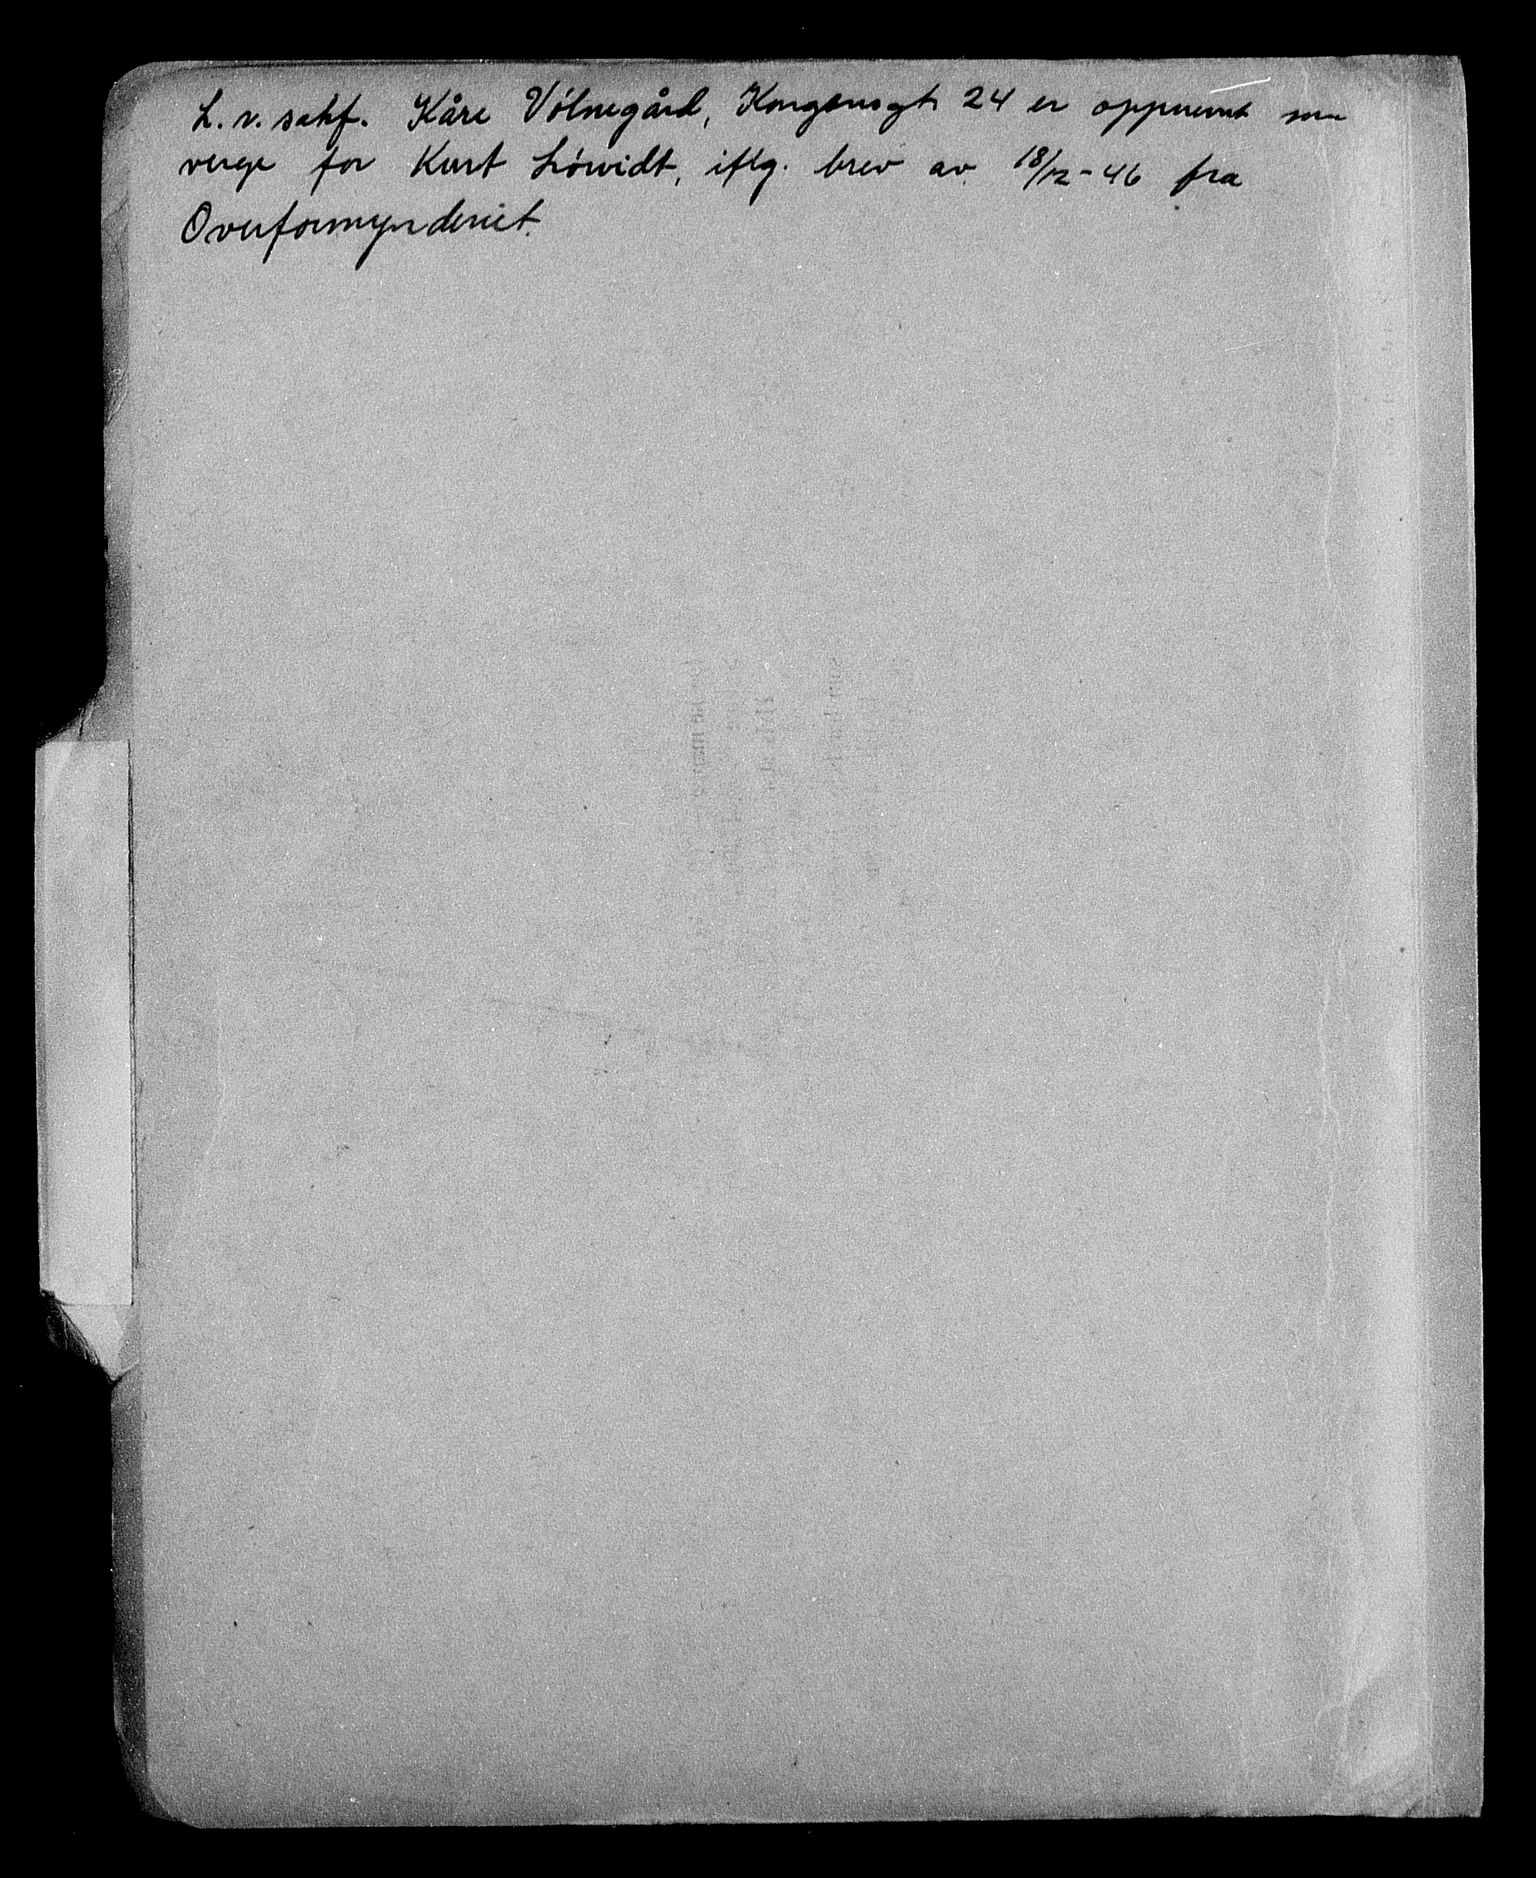 L.r.sakf. Kåre Vólnegård, Kongensgt. 24 er oppnevnt som
verge for Kurt Lówidt, iflg. brev av 18/12-46 fra
Overformynderiet.